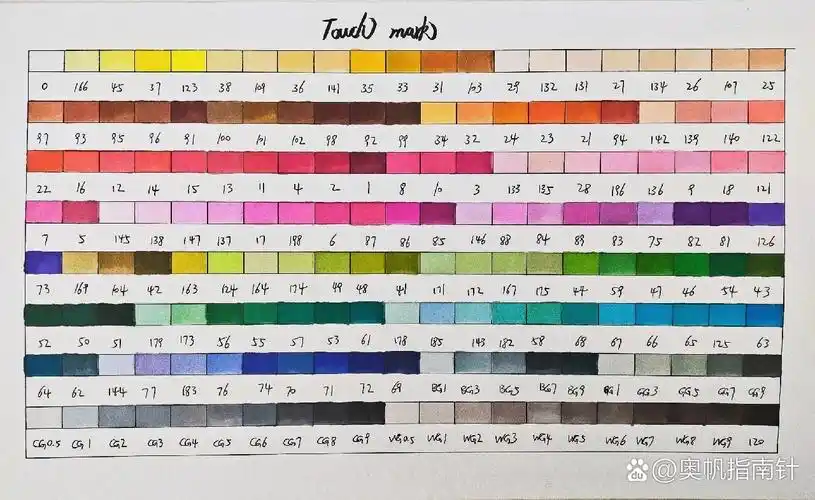 Touch mark
0 166 45 37 123 38 109 36 141 35 33 31 103 29 132 131 27 134 26 107 25
97 93 95 96 91 100 101 102 98 92 99 34 32 24 23 21 94 142 139 140 122
22 16 12 14 15 13 11 4 2 1 8 10 3 133 135 28 196 136 9 18 121
7 5 145 138 147 137 17 198 6 87 86 85 146 88 84 89 83 75 82 81 126
73 169 104 42 163 124 164 174 49 48 41 171 172 167 175 44 59 47 46 54 43
52 50 51 179 173 56 55 57 53 61 178 185 143 182 58 68 67 66 65 125 63
64 62 144 77 183 76 74 70 71 72 69 BG1 BG3 BG5 BG7 BG9 GG1 GG3 GG5 GG7 GG9
CG0.5 CG1 CG2 CG3 CG4 CG5 CG6 CG7 CG8 CG9 WG0.5 WG1 WG2 WG3 WG4 WG5 WG6 WG7 WG8 WG9 120
Baidu @奥帆指南针